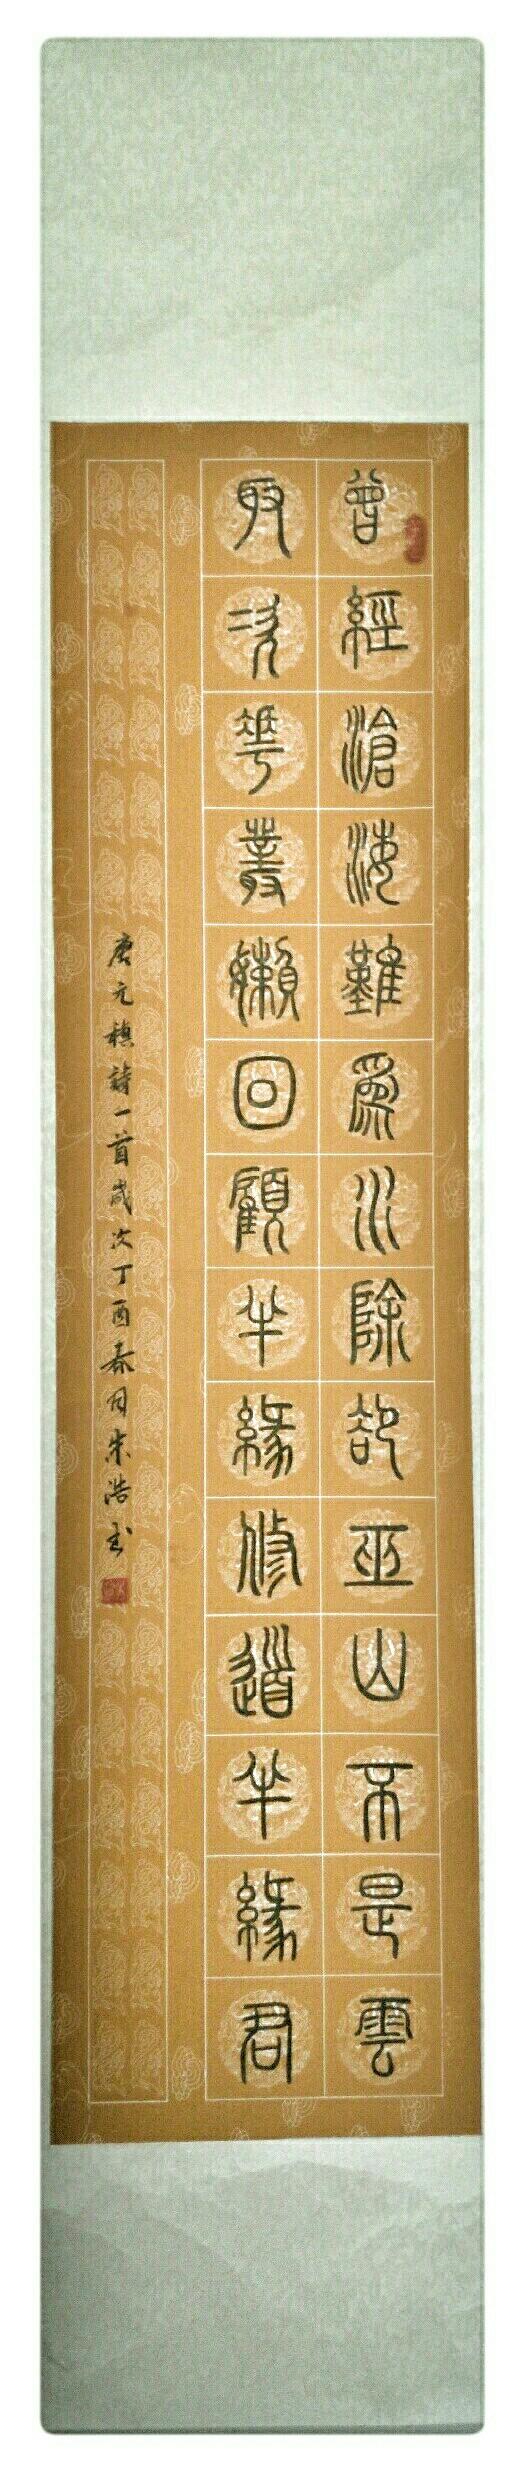 曾經滄海難為水除卻巫山不是雲
取次花叢嬾回顧半緣修道半緣君
唐元稹詩一首歲次丁酉春月朱浩書